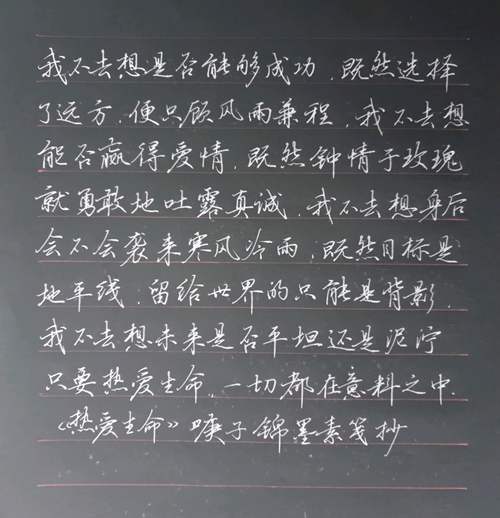 我不去想是否能够成功，既然选择
了远方，便只顾风雨兼程，我不去想
能否赢得爱情，既然钟情于玫瑰
就勇敢地吐露真诚，我不去想身后
会不会袭来寒风冷雨，既然目标是
地平线，留给世界的只能是背影，
我不去想未来是否平坦还是泥泞
只要热爱生命，一切都在意料之中．
《热爱生命》庚子锦墨素笺抄